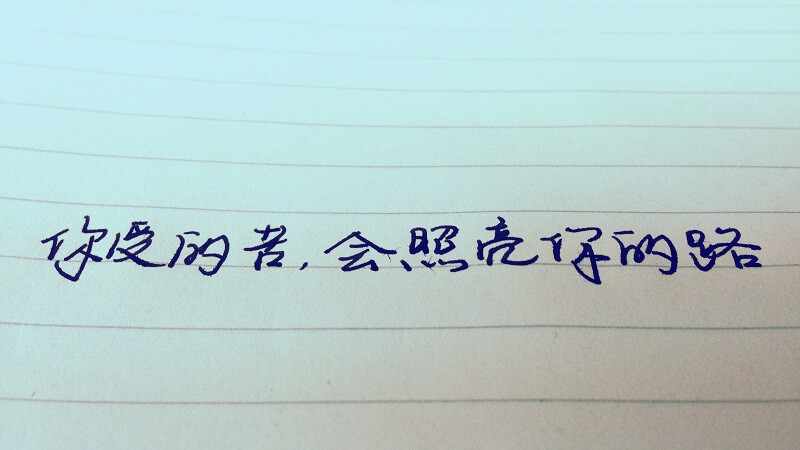 你受的苦,会照亮你的路